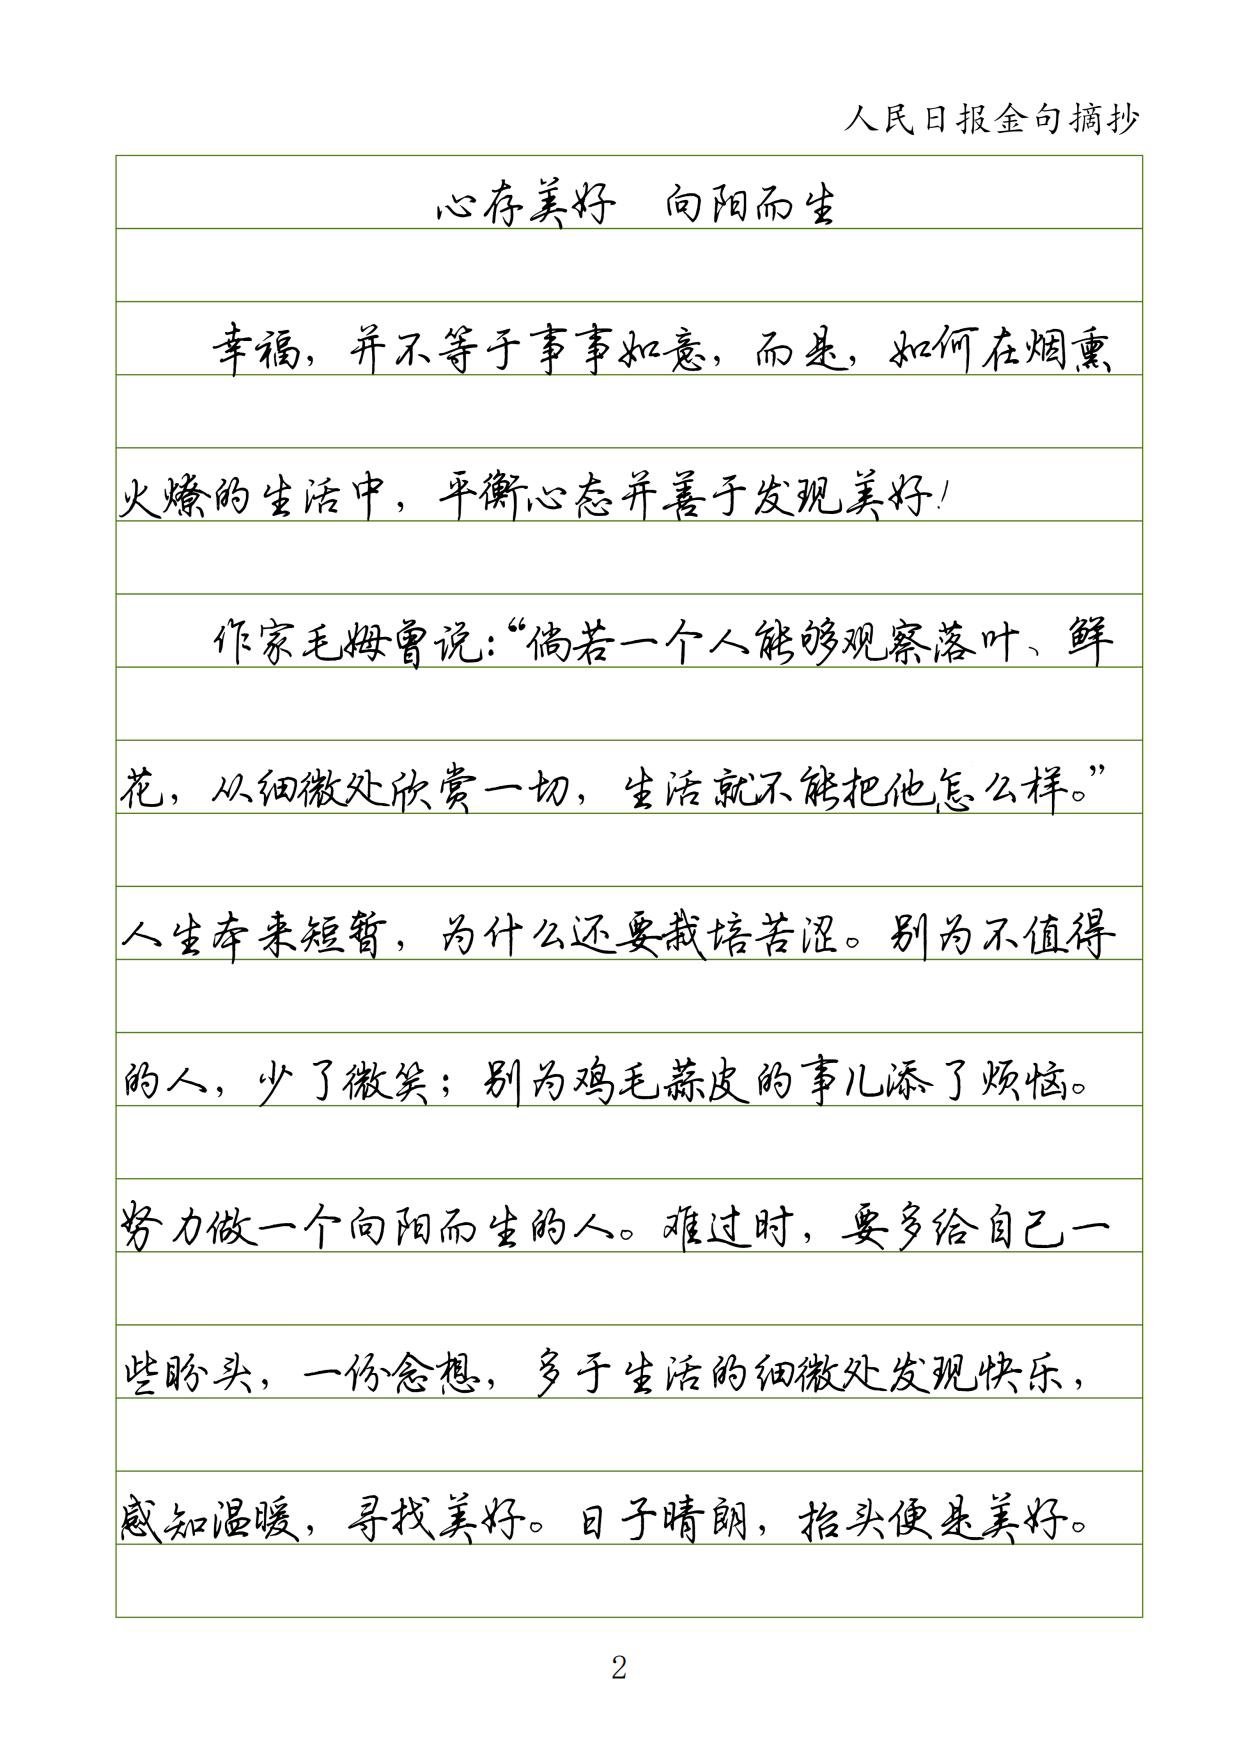 人民日报金句摘抄
心存美好　向阳而生
幸福，并不等于事事如意，而是，如何在烟熏
火燎的生活中，平衡心态并善于发现美好！
作家毛姆曾说：“倘若一个人能够观察落叶、鲜
花，从细微处欣赏一切，生活就不能把他怎么样。”
人生本来短暂，为什么还要栽培苦涩。别为不值得
的人，少了微笑；别为鸡毛蒜皮的事儿添了烦恼。
努力做一个向阳而生的人。难过时，要多给自己一
些盼头，一份念想，多于生活的细微处发现快乐，
感知温暖，寻找美好。日子晴朗，抬头便是美好。
2